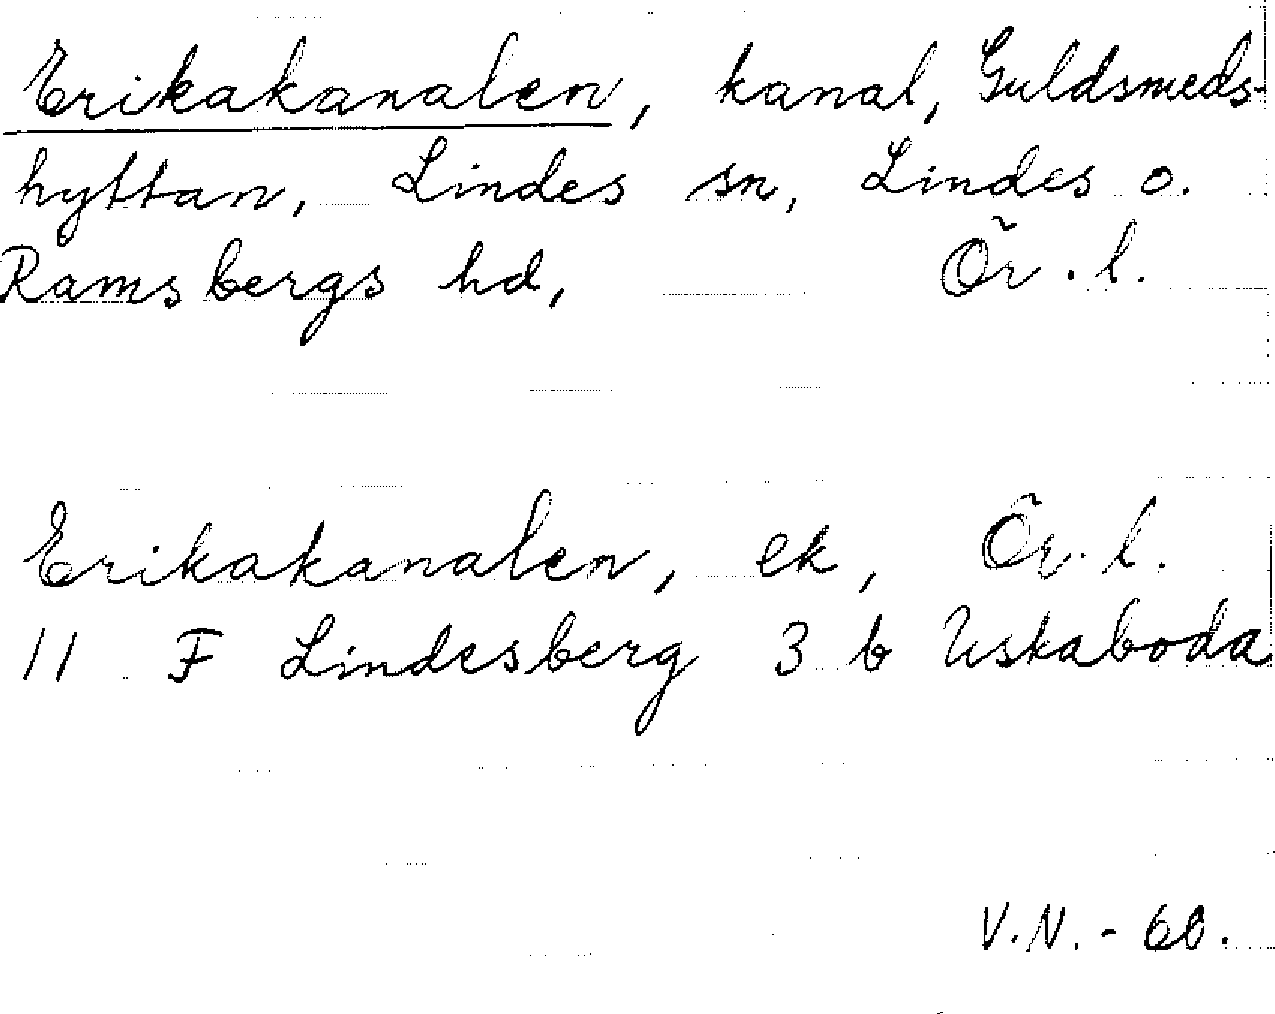 Erikakanalen, kanal, Guldsmeds-
hyttan, Lindes sn, Lindes o.
Ramsbergs hd, Ör. l.
Erikakanalen, ek, Ör. l.
11 F Lindesberg 3 b Uskaboda
V.N. - 60.